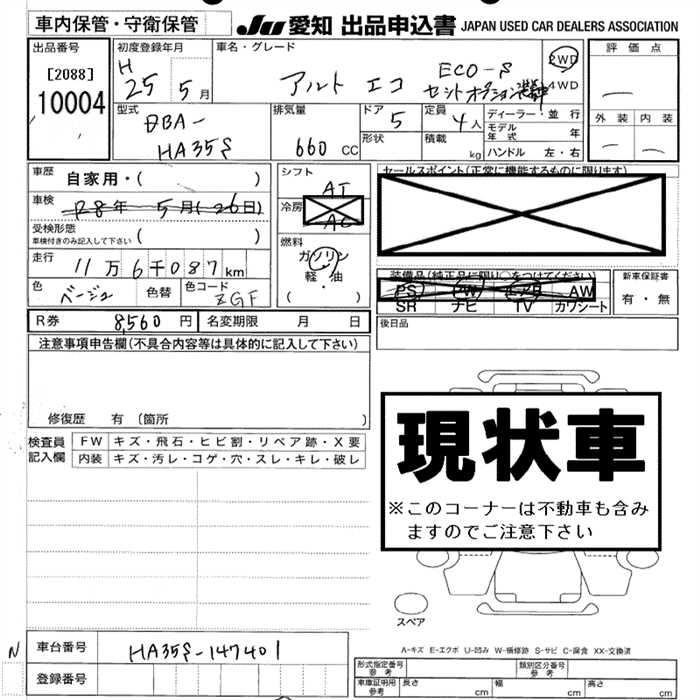 車内保管・守衛保管
JU 愛知 出品申込書 JAPAN USED CAR DEALERS ASSOCIATION
出品番号
[2088]
10004
初度登録年月
H 25 5月
車名・グレード
アルト エコ ECO-S
2WD
4WD
評価点
外装 内装
型式
DBA-
HA35S
排気量
660 CC
ドア
5
形状
定員
4人
積載
kg
ディーラー・並行
モデル年式 年
ハンドル 左・右
車歴
自家用・( )
車検
R8年 5月(26日)
受検形態
車検付きのみ記入して下さい ( )
走行
11万6千087km
色
ベージュ
色替
色コード
ZGF
シフト
AT
冷房
AC
燃料
ガソリン
軽・油
( )
セールスポイント(正常に機能するものに限ります)
装備品(純正品に限り○をつけてください)
PS PW エアB AW
SR ナビ TV カワシート
新車保証書
有・無
後日品
R券 8,560 円 名変期限 月 日
注意事項申告欄(不具合内容等は具体的に記入して下さい)
修復歴 有 (箇所 )
検査員
記入欄
FW キズ・飛石・ヒビ割・リペア跡・X要
内装 キズ・汚レ・コゲ・穴・スレ・キレ・破レ
現状車
※このコーナーは不動車も含み
ますのでご注意下さい
スペア
A-キズ E-エクボ U-凹み W-補修跡 S-サビ C-腐食 XX-交換済
N
車台番号
HA35S-147401
登録番号
形式指定番号
参考
類別区分番号
参考
車庫証明用
参考
長さ cm
幅 cm
高さ cm